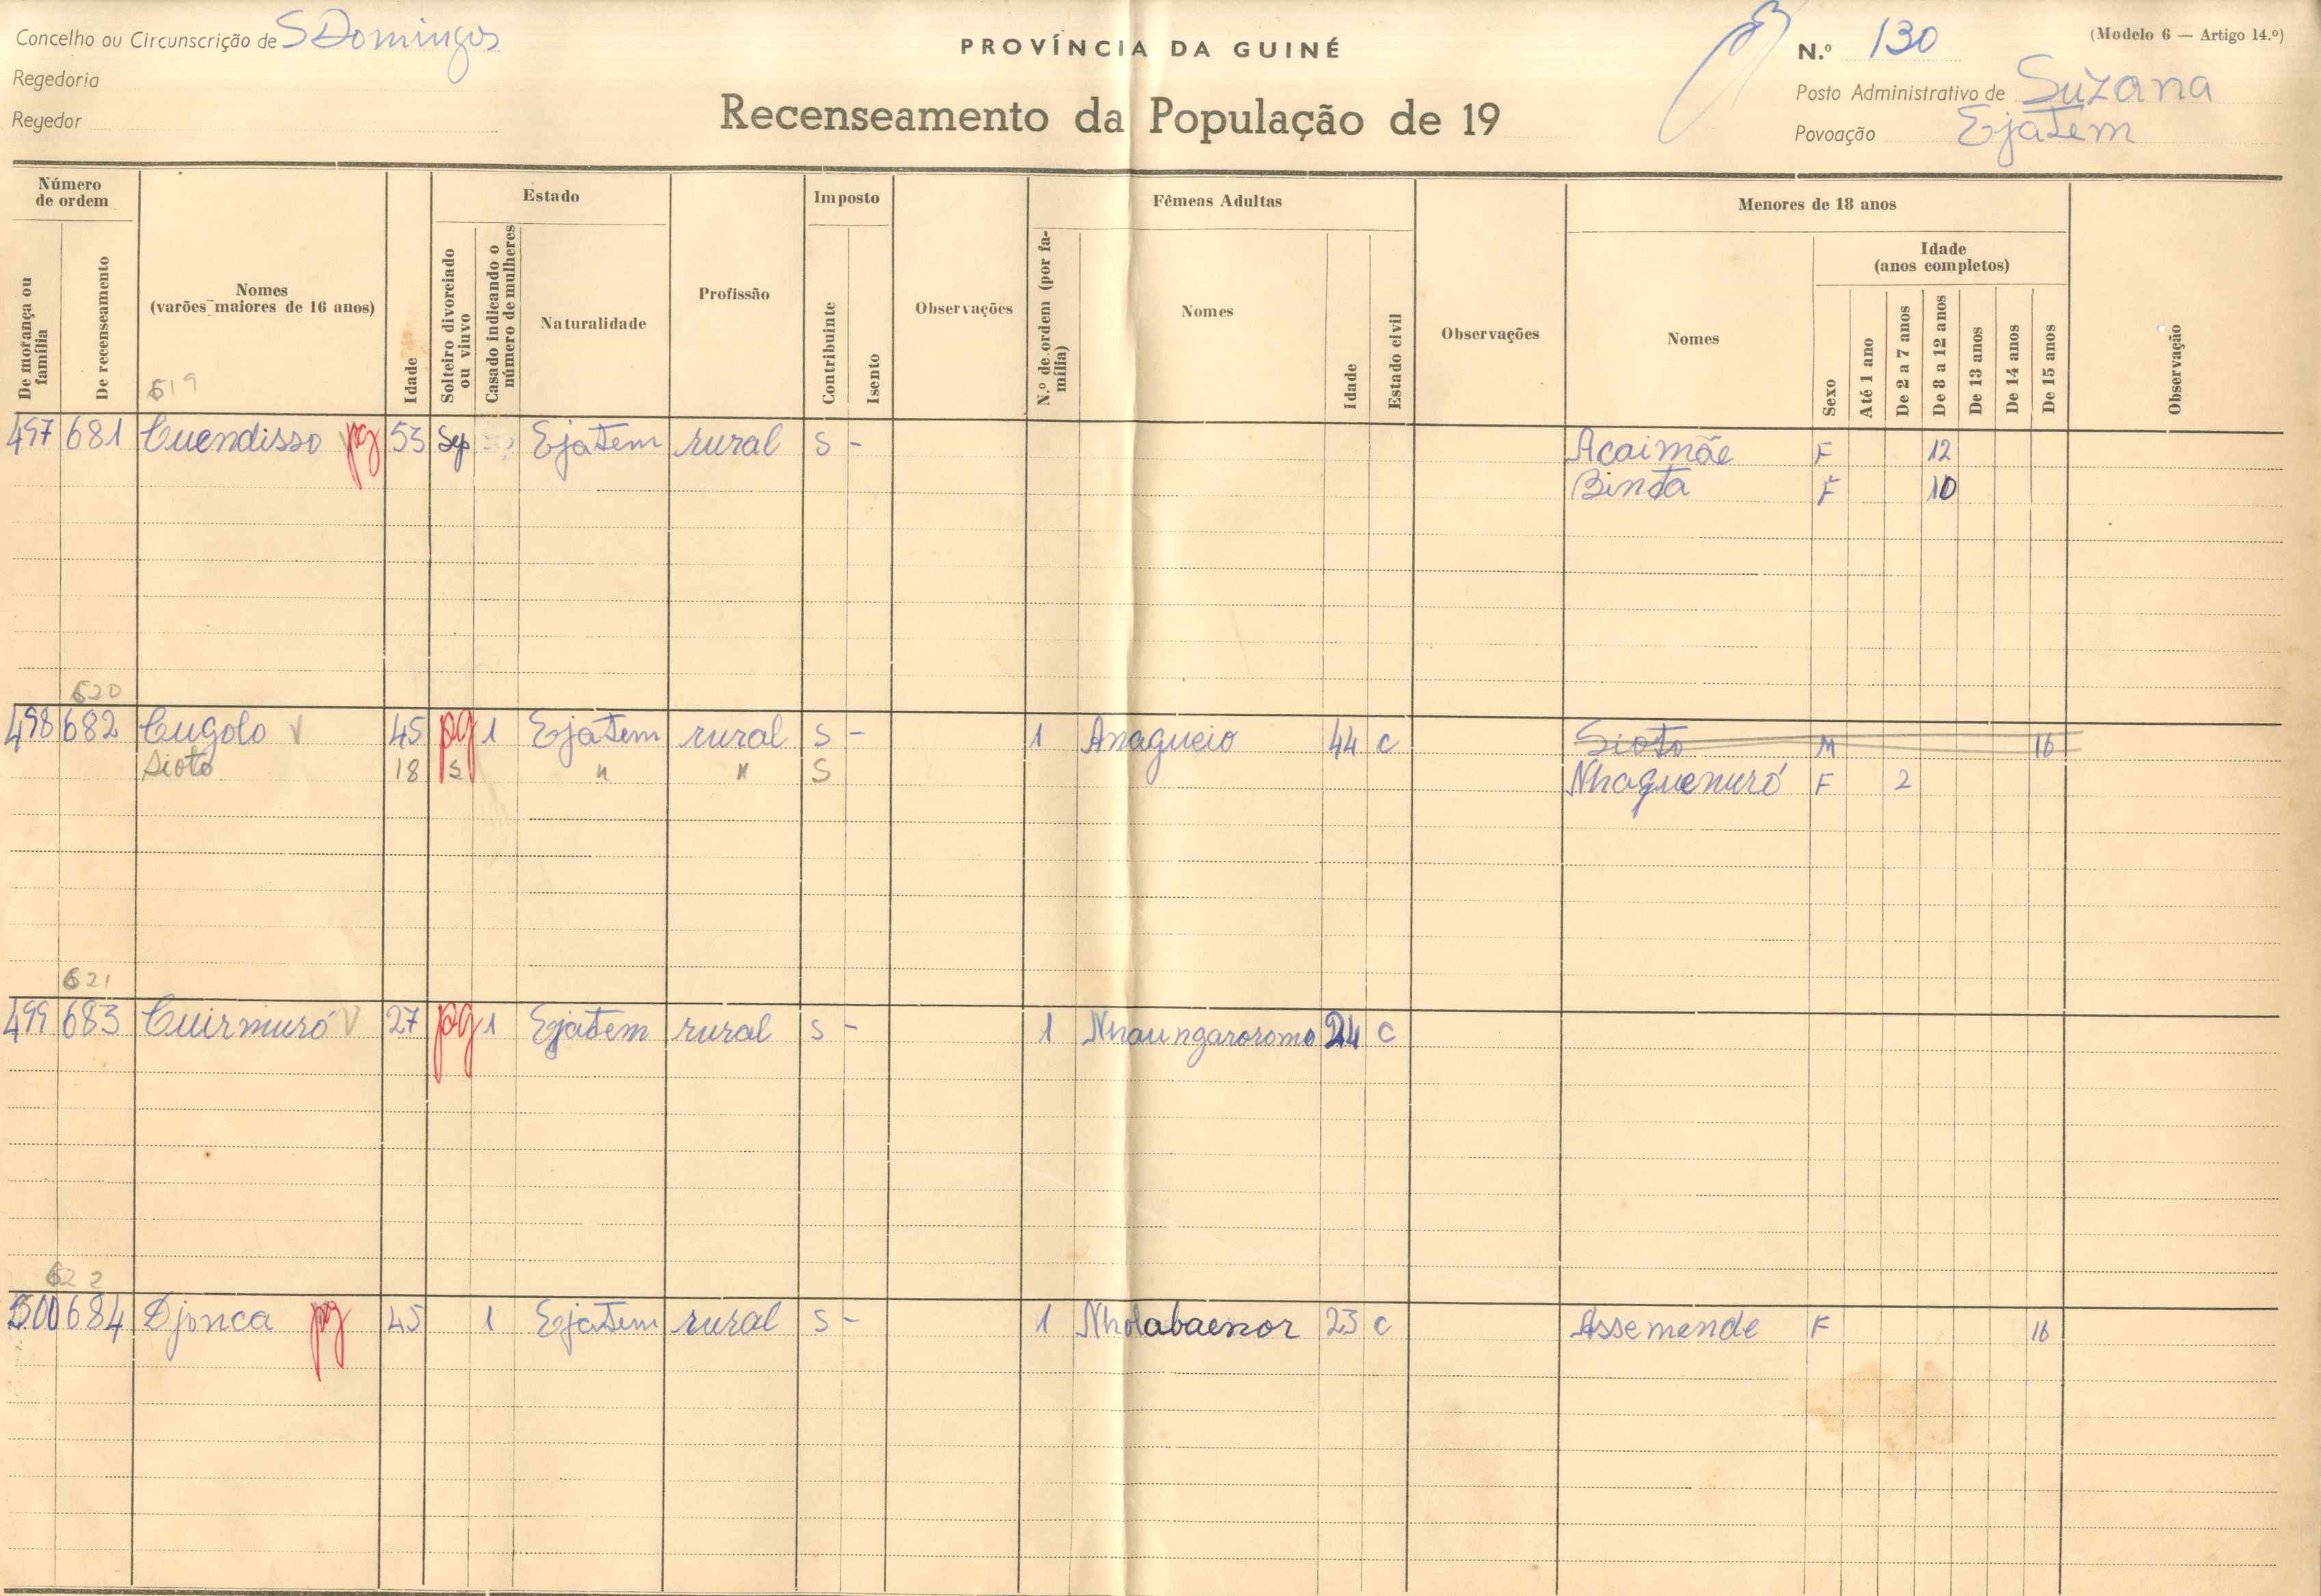 Concelho ou Circunscrição de S Domingos
PROVÍNCIA DA GUINÉ
N.º 130
(Modelo 6 — Artigo 14.º)
Regedoria
Posto Administrativo de Suzana
Regedor
Recenseamento da População de 19
Povoação Ejatem
Número de ordem
Estado
Imposto
Fêmeas Adultas
Menores de 18 anos
De morança ou família
De recenseamento
Nomes (varões maiores de 16 anos)
Idade
Solteiro divorciado ou viuvo
Casado indicando o número de mulheres
Naturalidade
Profissão
Contribuinte
Isento
Observações
N.º de ordem (por família)
Nomes
Idade
Estado civil
Observações
Nomes
Sexo
Idade (anos completos)
Até 1 ano
De 2 a 7 anos
De 8 a 12 anos
De 13 anos
De 14 anos
De 15 anos
Observação
619
497 681 Cuendisso pg 53 Sep Ejatem rural S - Acaimãe F 12
Binta F 10
620
498 682 Cugolo V 45 pg 1 Ejatem rural S - 1 Anagueio 44 C Sioto M 16
Sioto 18 S " " S Nhaguenuró F 2
621
499 683 Cuirmuró V 27 pg 1 Ejatem rural S - 1 Nhaungaroromo 24 C
622
500 684 Djonca pg 45 1 Ejatem rural S - 1 Nholabaenor 23 C Assemende F 16